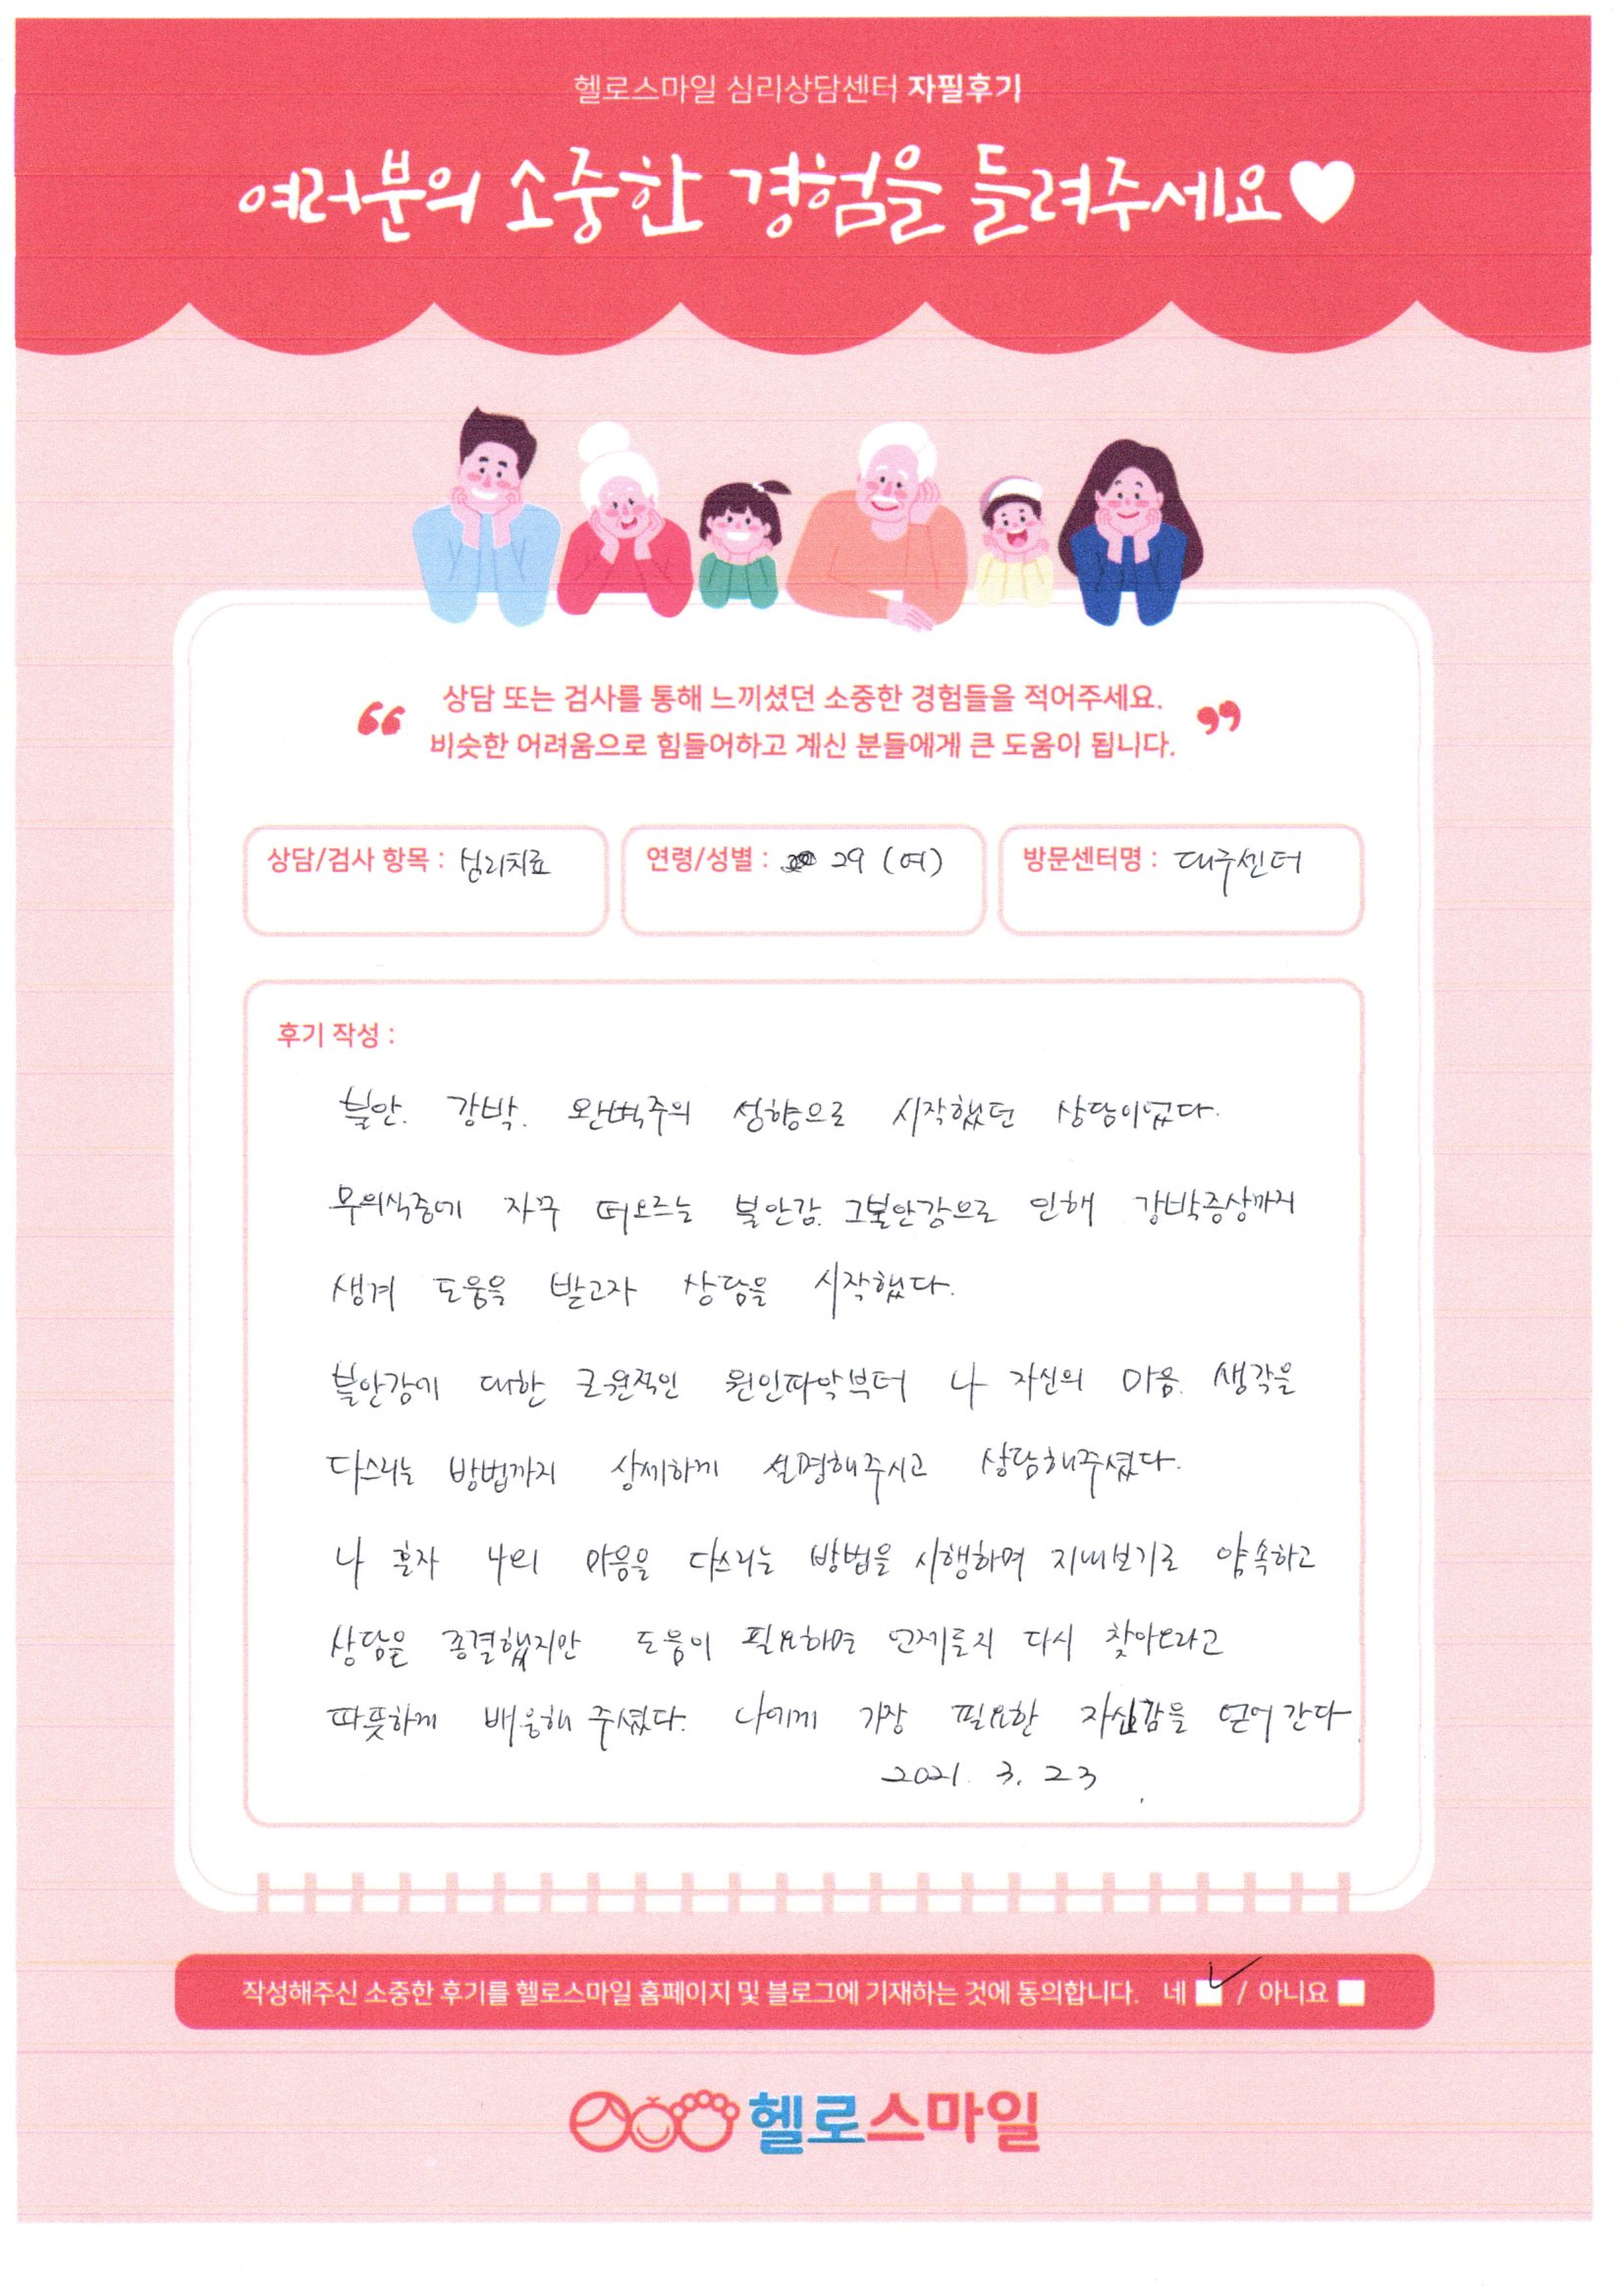 헬로스마일 심리상담센터 자필후기
여러분의 소중한 경험을 들려주세요♥
“ 상담 또는 검사를 통해 느끼셨던 소중한 경험들을 적어주세요. ”
비슷한 어려움으로 힘들어하고 계신 분들에게 큰 도움이 됩니다.
상담/검사 항목 : 심리치료
연령/성별 : 29 (여)
방문센터명 : 대구센터
후기 작성 :
불안. 강박. 완벽주의 성향으로 시작했던 상담이었다.
무의식중에 자꾸 떠오르는 불안감. 그불안감으로 인해 강박증상까지
생겨 도움을 받고자 상담을 시작했다.
불안감에 대한 근원적인 원인파악부터 나 자신의 마음. 생각을
다스리는 방법까지 상세하게 설명해주시고 상담해주셨다.
나 혼자 나의 마음을 다스리는 방법을 시행하며 지내보기로 약속하고
상담을 종결했지만 도움이 필요하면 언제든지 다시 찾아오라고
따뜻하게 배웅해 주셨다. 나에게 가장 필요한 자신감을 얻어 간다.
2021. 3. 23
작성해주신 소중한 후기를 헬로스마일 홈페이지 및 블로그에 기재하는 것에 동의합니다. 네 ✓ / 아니요
헬로스마일